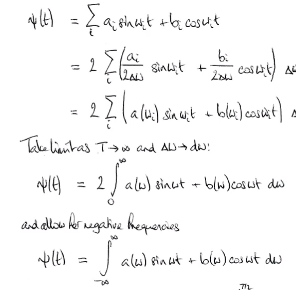 ψ(t) = ∑ᵢ aᵢ sin ωᵢt + bᵢ cos ωᵢt
= 2 ∑ᵢ (aᵢ/2Δω sin ωᵢt + bᵢ/2Δω cos ωᵢt) Δ
= 2 ∑ᵢ (a(ωᵢ) sin ωᵢt + b(ωᵢ) cos ωᵢt) Δ
Take limit as T → ∞ and Δω → dω:
ψ(t) = 2 ∫₀^∞ a(ω) sin ωt + b(ω) cos ωt dω
and allow for negative frequencies
ψ(t) = ∫₋∞^∞ a(ω) sin ωt + b(ω) cos ωt dω